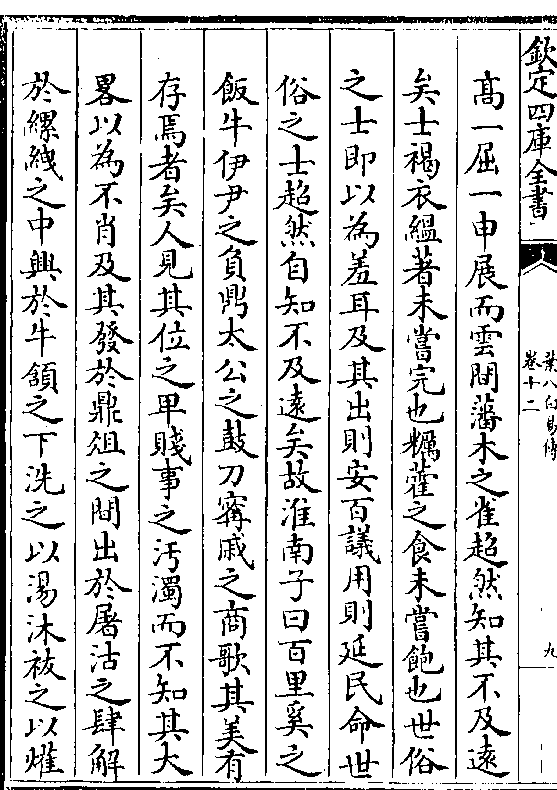 欽定四庫全書
葉八白易傳
卷十二
九
高一屈一申展而雲間藩木之雀超然知其不及逺
矣士褐衣緼著未嘗完也糲藿之食未嘗飽也世俗
之士即以為羞耳及其出則安百議用則延民命世
俗之士超然自知不及逺矣故淮南子曰百里奚之
飯牛伊尹之負鼎太公之鼓刀甯戚之商歌其美有
存焉者矣人見其位之卑賤事之汚濁而不知其大
畧以為不肖及其發於鼎俎之間出於屠沽之肆解
於縲絏之中興於牛頷之下洗之以湯沐祓之以爟